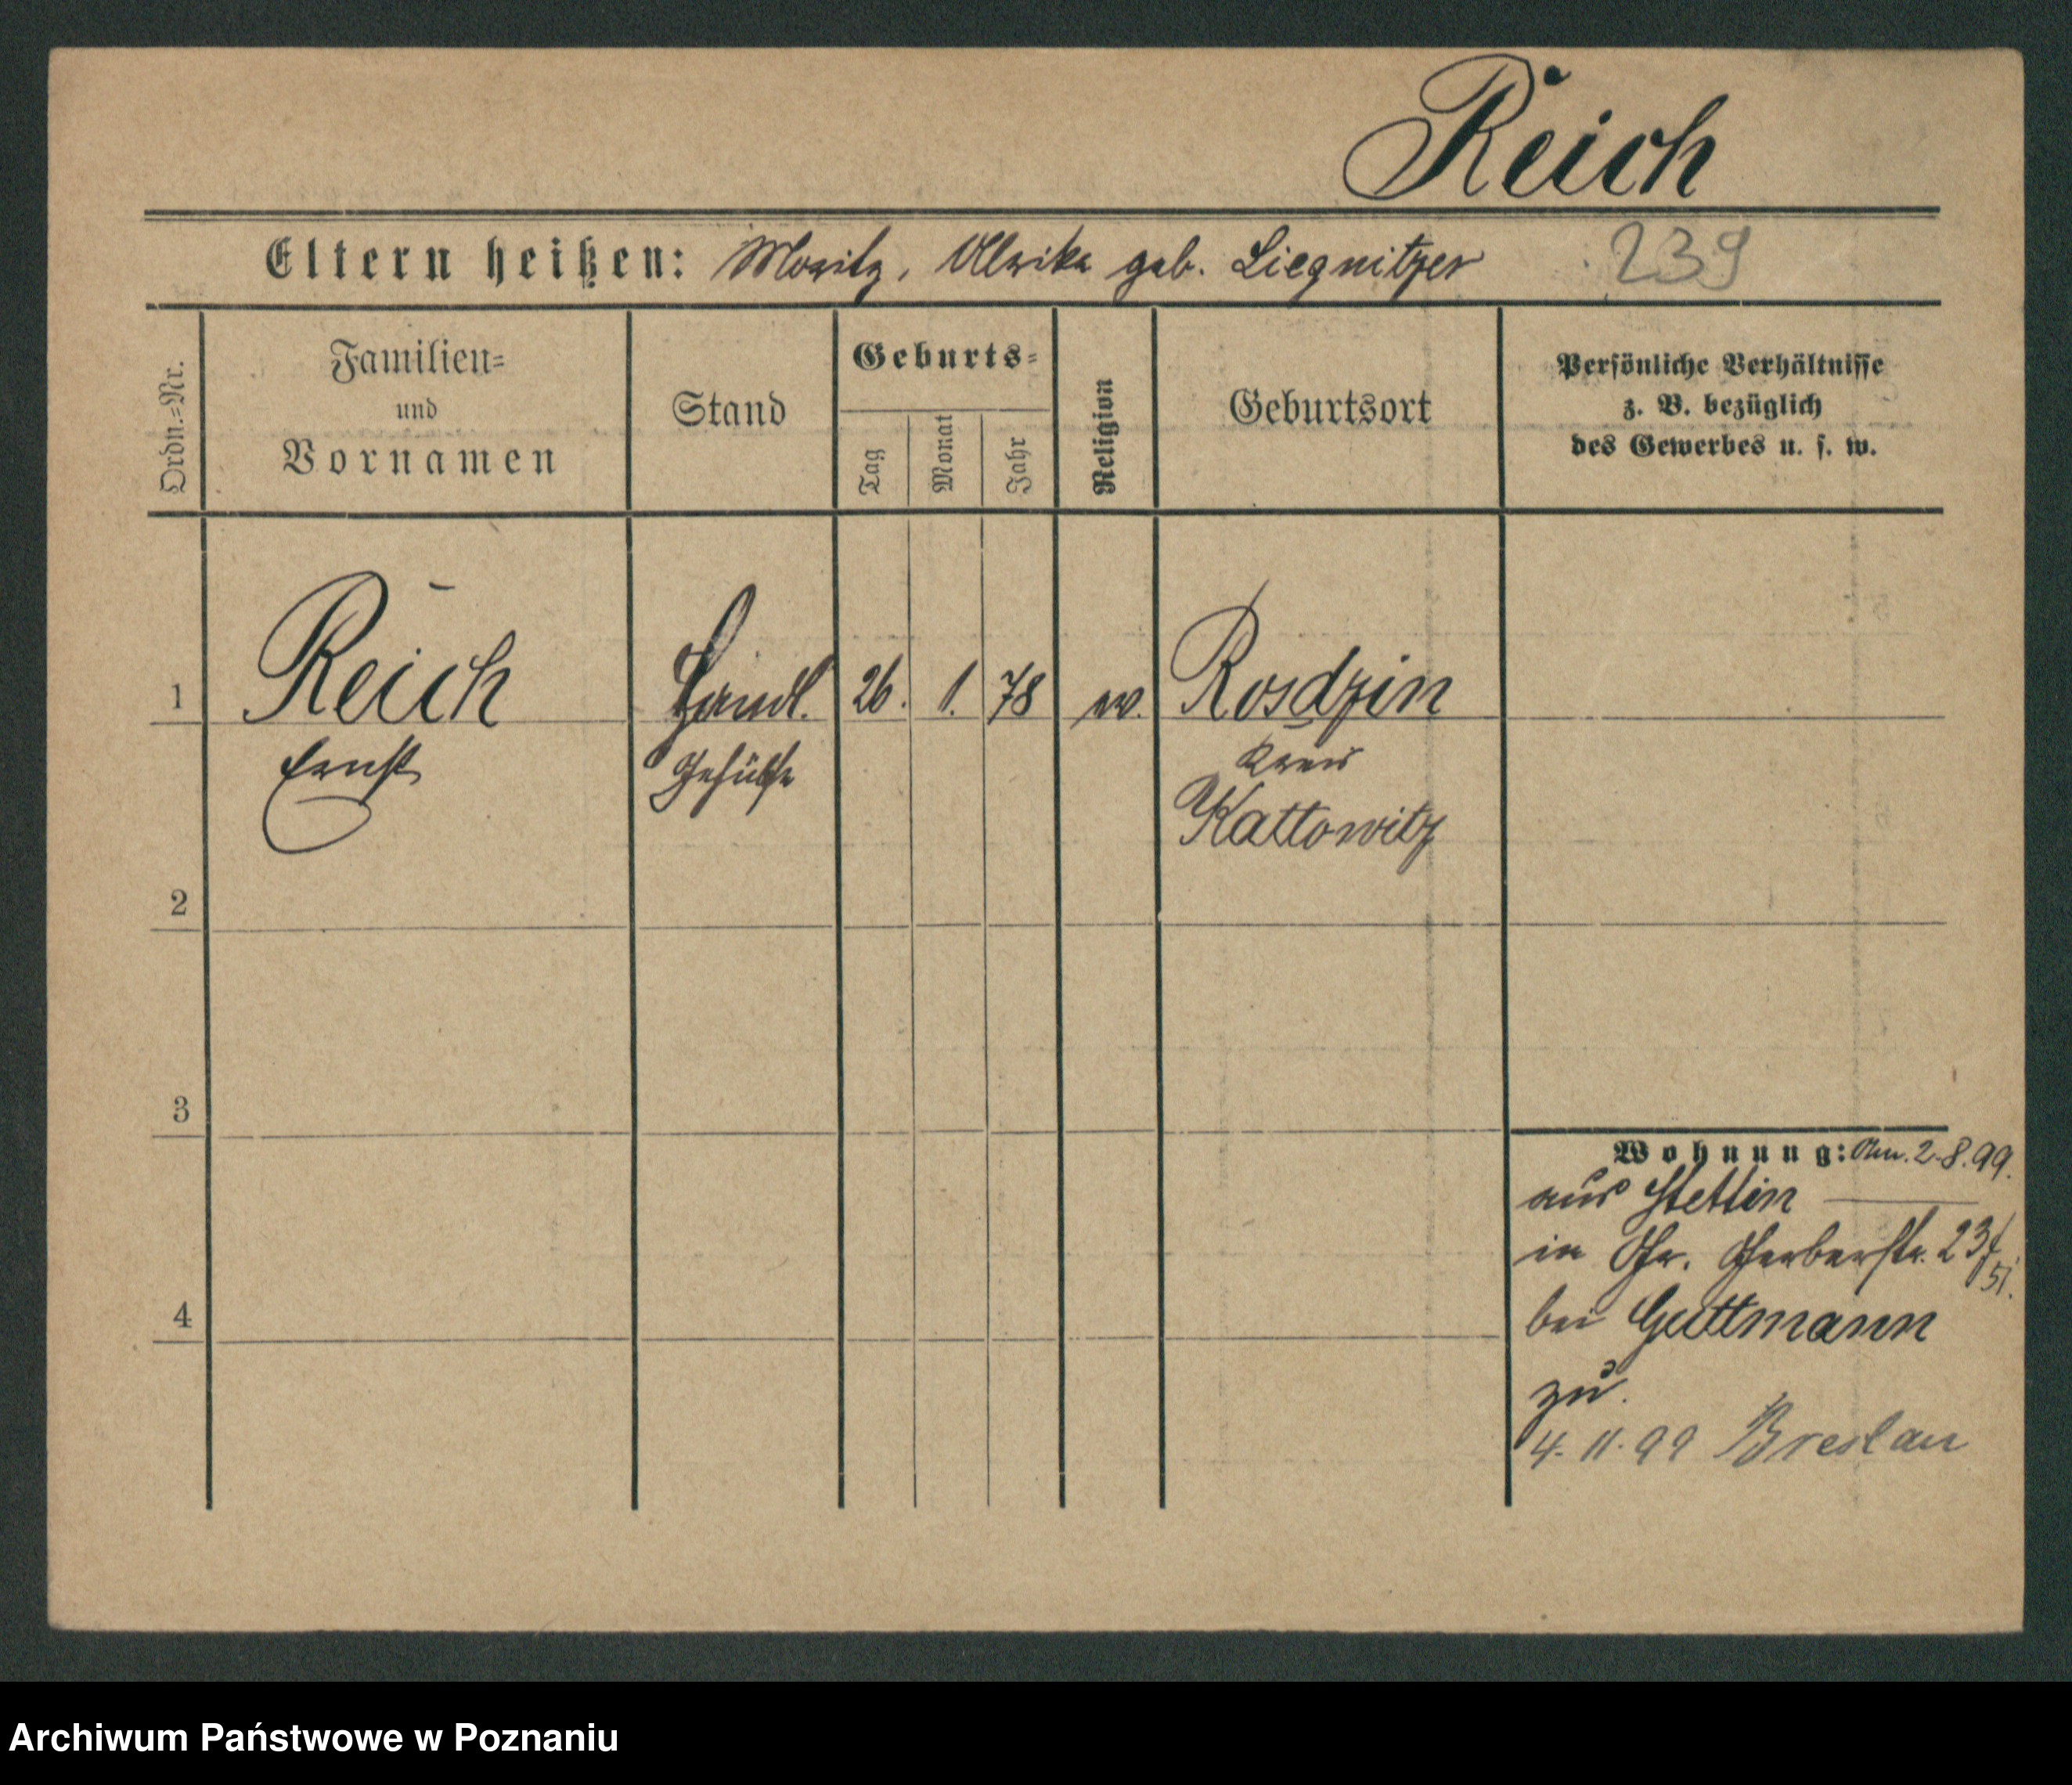 Reich
Eltern heißen: Moritz, Ulrike geb. Liegnitzer 239
Ordn.=Nr.
Familien=
und
Vornamen
Stand
Geburts=
Tag
Monat
Jahr
Religion
Geburtsort
Persönliche Verhältnisse
z. B. bezüglich
des Gewerbes u. s. w.
1 Reich Handl. 26. 1. 78 Rosdzin
Ernst Gehülfe Kreis
Kattowitz
2
3
4
Wohnung: 2.8.99.
aus Stettin
in Gr. Gerberstr. 23/
51.
bei Guttmann
zu.
4.11.99 Breslau
Archiwum Państwowe w Poznaniu